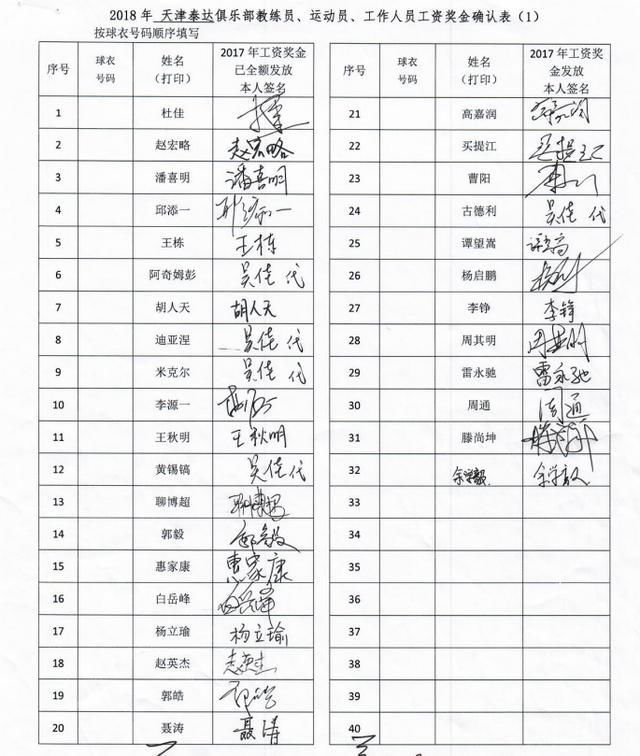 2018 年 天津泰达俱乐部教练员、运动员、工作人员工资奖金确认表（1）
按球衣号码顺序填写
序号 球衣号码 姓名（打印） 2017 年工资奖金已全额发放本人签名
1 杜佳
2 赵宏略 赵宏略
3 潘喜明 潘喜明
4 邱添一
5 王栋 王栋
6 阿奇姆彭 吴佳 代
7 胡人天 胡人天
8 迪亚涅 吴佳 代
9 米克尔 吴佳 代
10 李源一
11 王秋明 王秋明
12 黄锡镐 吴佳 代
13 聊博超
14 郭毅 郭毅
15 惠家康 惠家康
16 白岳峰 白岳峰
17 杨立瑜 杨立瑜
18 赵英杰 赵英杰
19 郭皓
20 聂涛 聂涛
序号 球衣号码 姓名（打印） 2017 年工资奖金发放本人签名
21 高嘉润
22 买提江 买提江
23 曹阳
24 古德利 吴佳 代
25 谭望嵩
26 杨启鹏
27 李铮 李铮
28 周其明 周其明
29 雷永驰 雷永驰
30 周通 周通
31 滕尚坤
32 余学毅 余学毅
33
34
35
36
37
38
39
40